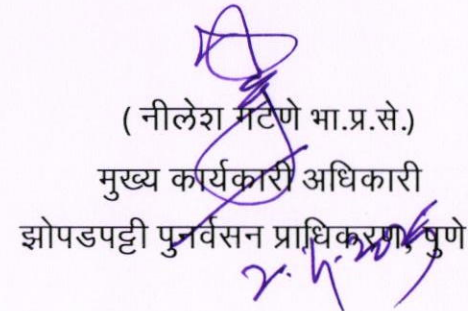 ( नीलेश गटणे भा.प्र.से.)
मुख्य कार्यकारी अधिकारी
झोपडपट्टी पुनर्वसन प्राधिकरण, पुणे